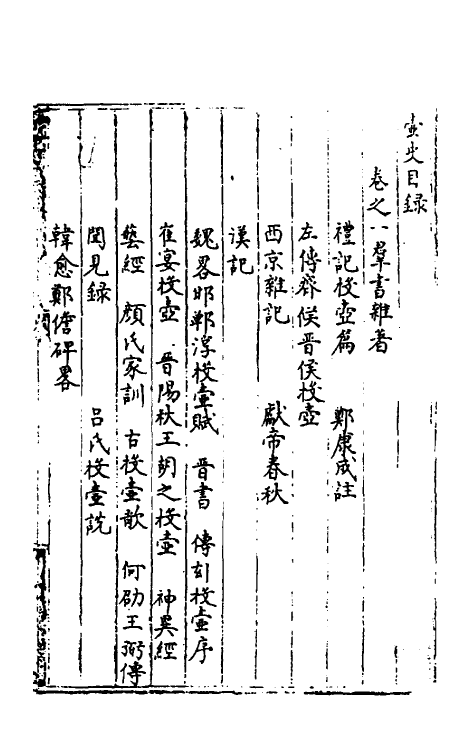 壺史目録
卷之一羣書雜著
禮記投壺篇 鄭康成註
左傳齊侯晉侯投壺
西京雜記 獻帝春秋
漢記
魏畧邯鄲淳投壺賦 晉書 傅玄投壺序
崔宴投壺 晉陽秋王胡之投壺 神異經
藝經 顏氏家訓 古投壺歌 何劭王弼傳
聞見録 呂氏投壺說
韓愈鄭儋碑畧